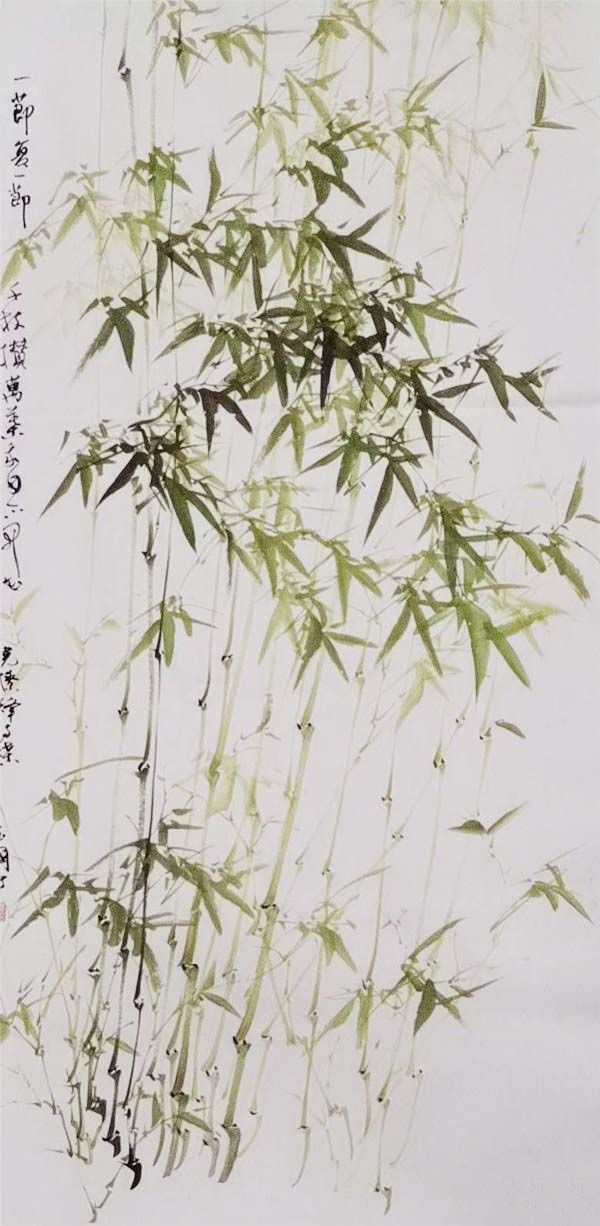 一節复一節 千枝攢萬葉我自不开花 免撩蜂与蝶